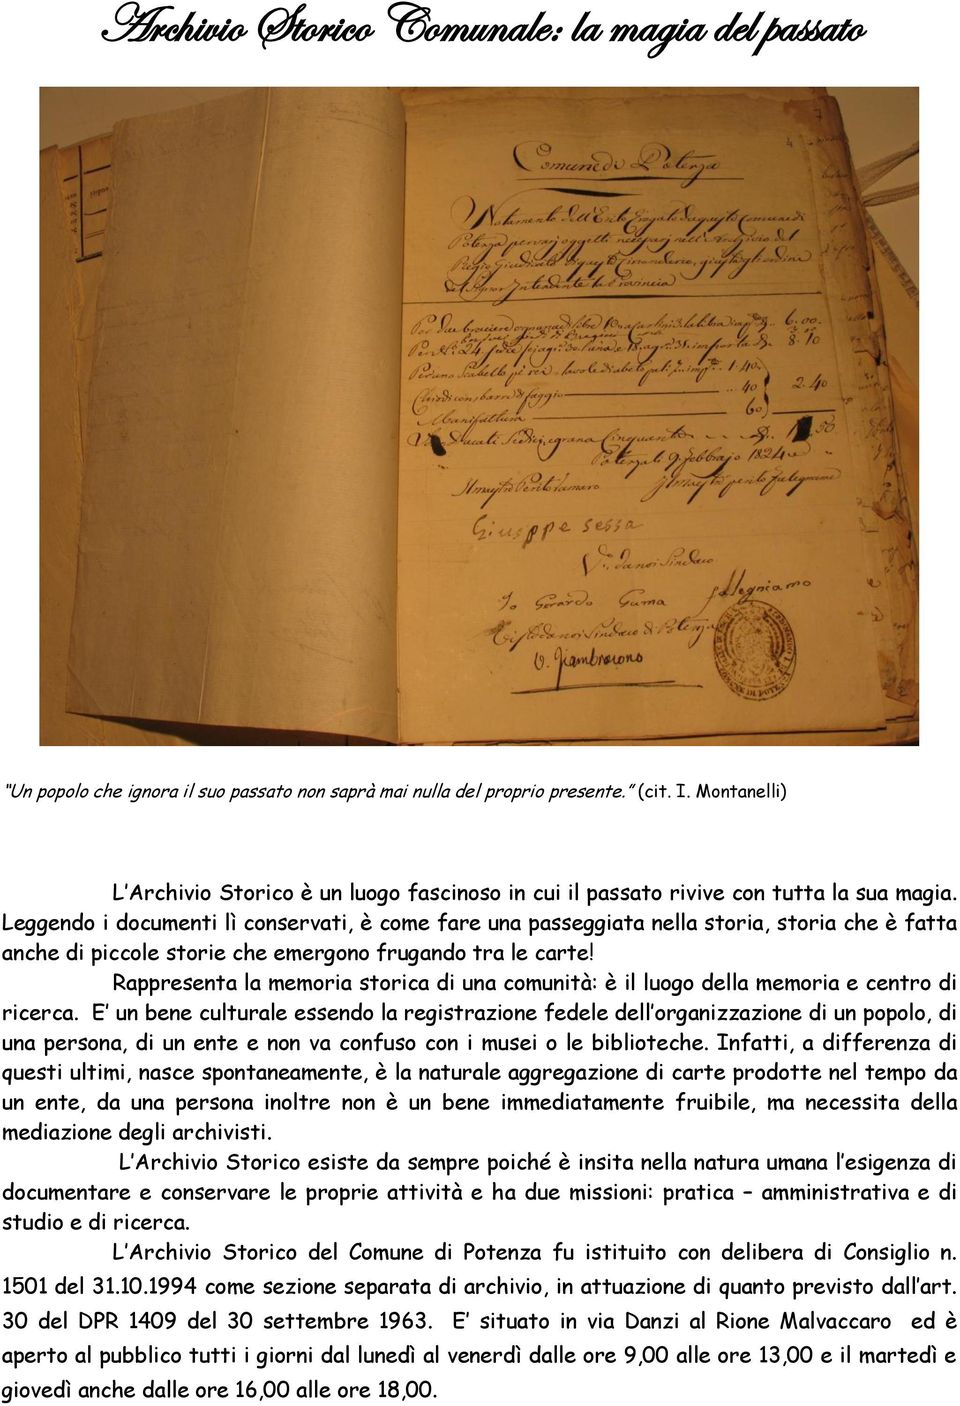 Archivio Storico Comunale: la magia del passato
Comune di Potenza
Notamento dell'Esito Erogato da questo Comune di
Potenza per varj oggetti necessarj nell'Archivio del
Regio Giudicato di questo Circondario, giusta gli ordini
del Signor Intendente della Provincia
6.00.
8.10
1.40
Chiodi con sbarre di faggio .. 40 2.40
Manifattura 60
Ducati Sedici, e grana Cinquanta
Potenza li 9. Febbrajo 1824
Il maestro Ferraro Il Maestro falegname
Giuseppe sessa
V.o da noi Sindaco
Io Gerardo Gama falegniamo
Visto da noi Sindaco di Potenza
“Un popolo che ignora il suo passato non saprà mai nulla del proprio presente.” (cit. I. Montanelli)
L’Archivio Storico è un luogo fascinoso in cui il passato rivive con tutta la sua magia.
Leggendo i documenti lì conservati, è come fare una passeggiata nella storia, storia che è fatta
anche di piccole storie che emergono frugando tra le carte!
Rappresenta la memoria storica di una comunità: è il luogo della memoria e centro di
ricerca. E’ un bene culturale essendo la registrazione fedele dell’organizzazione di un popolo, di
una persona, di un ente e non va confuso con i musei o le biblioteche. Infatti, a differenza di
questi ultimi, nasce spontaneamente, è la naturale aggregazione di carte prodotte nel tempo da
un ente, da una persona inoltre non è un bene immediatamente fruibile, ma necessita della
mediazione degli archivisti.
L’Archivio Storico esiste da sempre poiché è insita nella natura umana l’esigenza di
documentare e conservare le proprie attività e ha due missioni: pratica – amministrativa e di
studio e di ricerca.
L’Archivio Storico del Comune di Potenza fu istituito con delibera di Consiglio n.
1501 del 31.10.1994 come sezione separata di archivio, in attuazione di quanto previsto dall’art.
30 del DPR 1409 del 30 settembre 1963. E’ situato in via Danzi al Rione Malvaccaro ed è
aperto al pubblico tutti i giorni dal lunedì al venerdì dalle ore 9,00 alle ore 13,00 e il martedì e
giovedì anche dalle ore 16,00 alle ore 18,00.